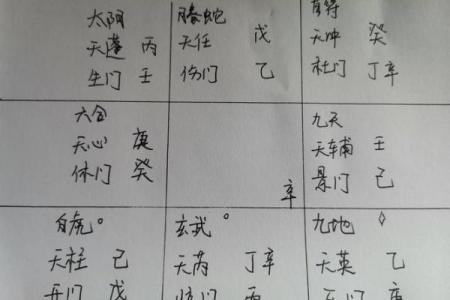 太阴
天蓬 丙
生门 壬
腾蛇
天任 戊
伤门 乙
直符
天冲 癸
杜门 丁辛
六合
天心 庚
休门 癸
辛
九天
天辅 壬
景门 己
白虎
天柱 己
开门 戊
玄武
天芮 丁辛
九地
天英 乙